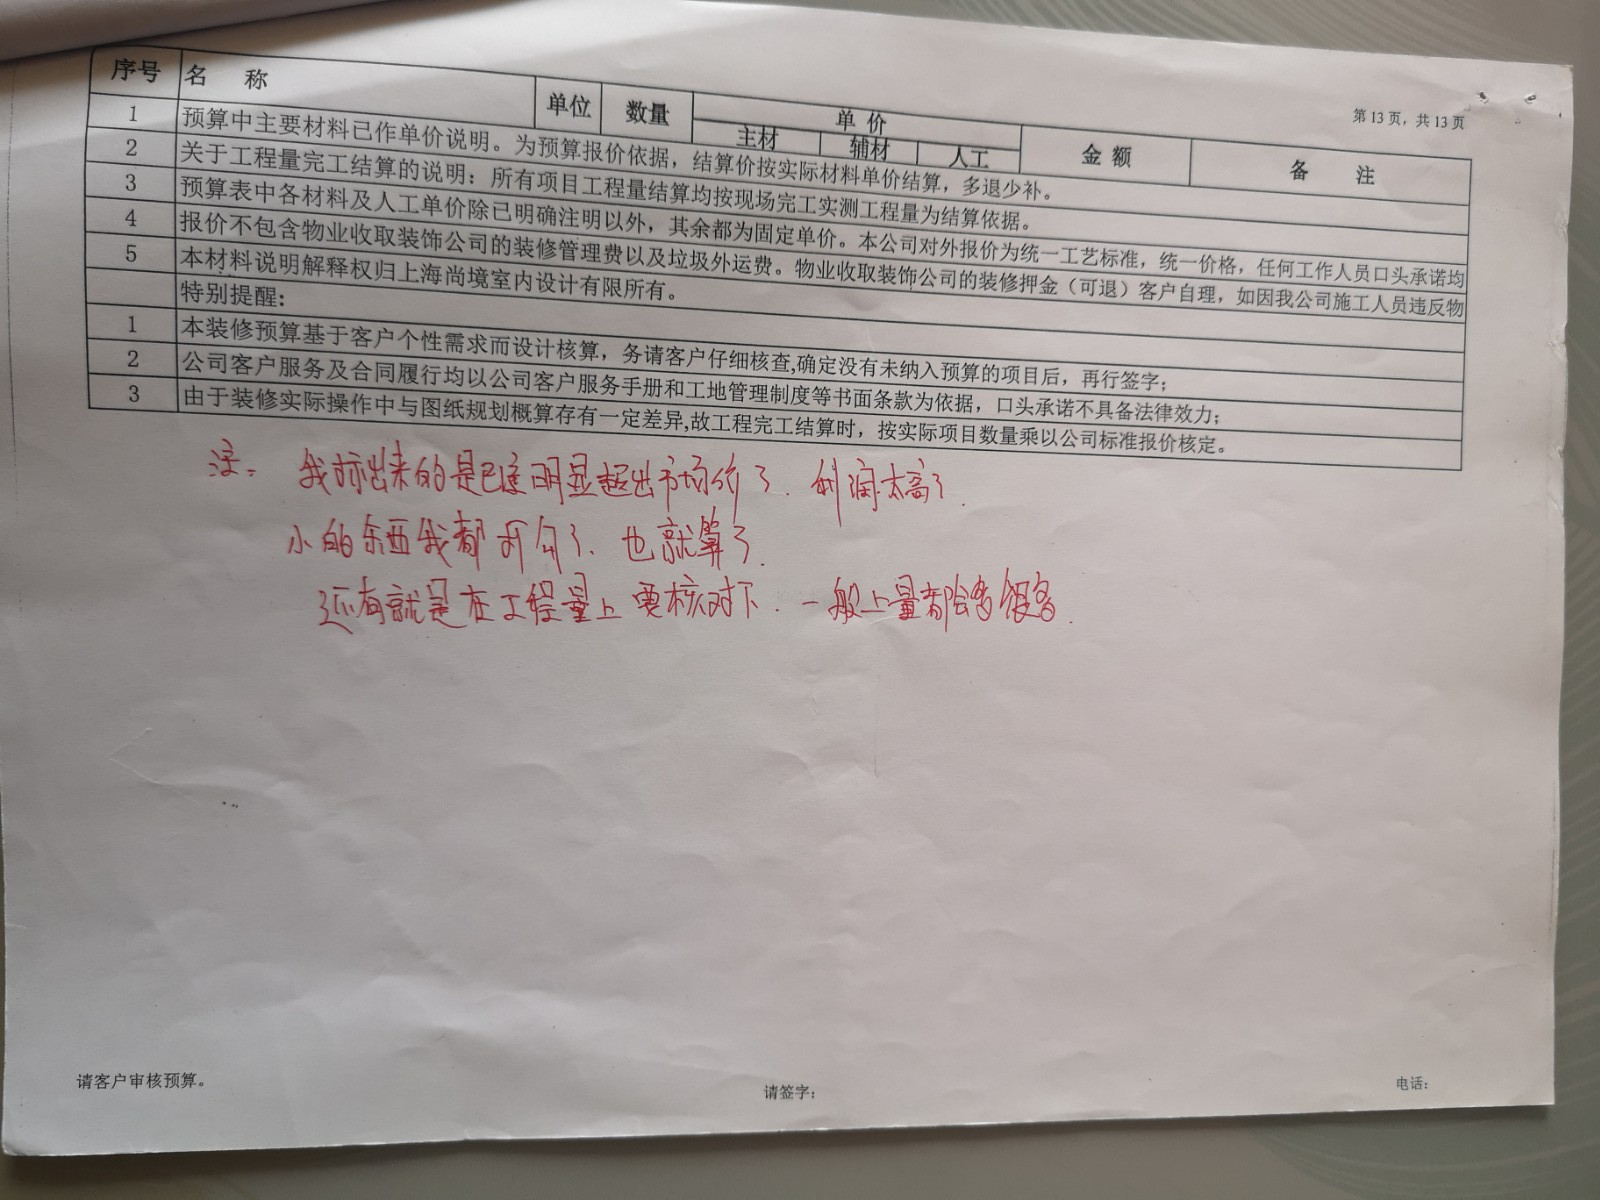 第 13 页，共 13 页
序号 名 称 单位 数量 单 价 金 额 备 注
主材 辅材 人工
1 预算中主要材料已作单价说明。为预算报价依据，结算价按实际材料单价结算，多退少补。
2 关于工程量完工结算的说明：所有项目工程量结算均按现场完工实测工程量为结算依据。
3 预算表中各材料及人工单价除已明确注明以外，其余都为固定单价。本公司对外报价为统一工艺标准，统一价格，任何工作人员口头承诺均
4 报价不包含物业收取装饰公司的装修管理费以及垃圾外运费。物业收取装饰公司的装修押金（可退）客户自理，如因我公司施工人员违反物
5 本材料说明解释权归上海尚境室内设计有限所有。
特别提醒：
1 本装修预算基于客户个性需求而设计核算，务请客户仔细核查,确定没有未纳入预算的项目后，再行签字；
2 公司客户服务及合同履行均以公司客户服务手册和工地管理制度等书面条款为依据，口头承诺不具备法律效力；
3 由于装修实际操作中与图纸规划概算存有一定差异,故工程完工结算时，按实际项目数量乘以公司标准报价核定。
注： 我标出来的是已这明显超出市场价了. 利润太高了.
小的东西我都不勾了. 也就算了.
还有就是在工程量上要核对下. 一般上量都会多很多.
请客户审核预算。
请签字：
电话：